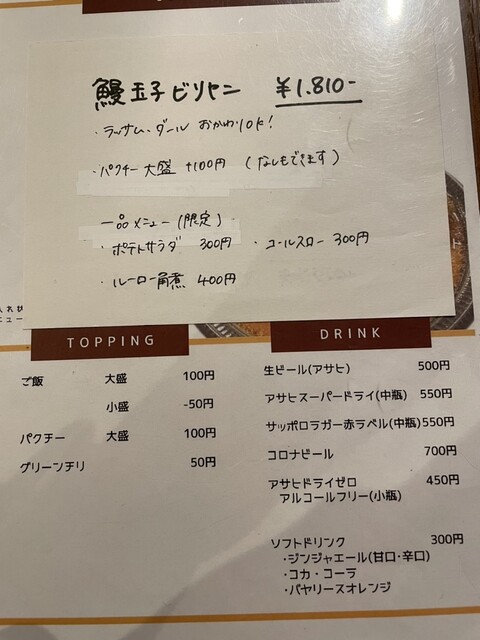 鰻玉子ビリヤニ ¥1.810-
・ラッサム・ダール おかわりOK!
・パクチー大盛 +100円 (なしもできます)
一品メニュー(限定)
・ポテトサラダ 300円 ・コールスロー 300円
・ルーロー角煮 400円
TOPPING
ご飯 大盛 100円
小盛 -50円
パクチー 大盛 100円
グリーンチリ 50円
DRINK
生ビール(アサヒ) 500円
アサヒスーパードライ(中瓶) 550円
サッポロラガー赤ラベル(中瓶) 550円
コロナビール 700円
アサヒドライゼロ 450円
アルコールフリー(小瓶)
ソフトドリンク 300円
・ジンジャエール(甘口・辛口)
・コカ・コーラ
・バヤリースオレンジ